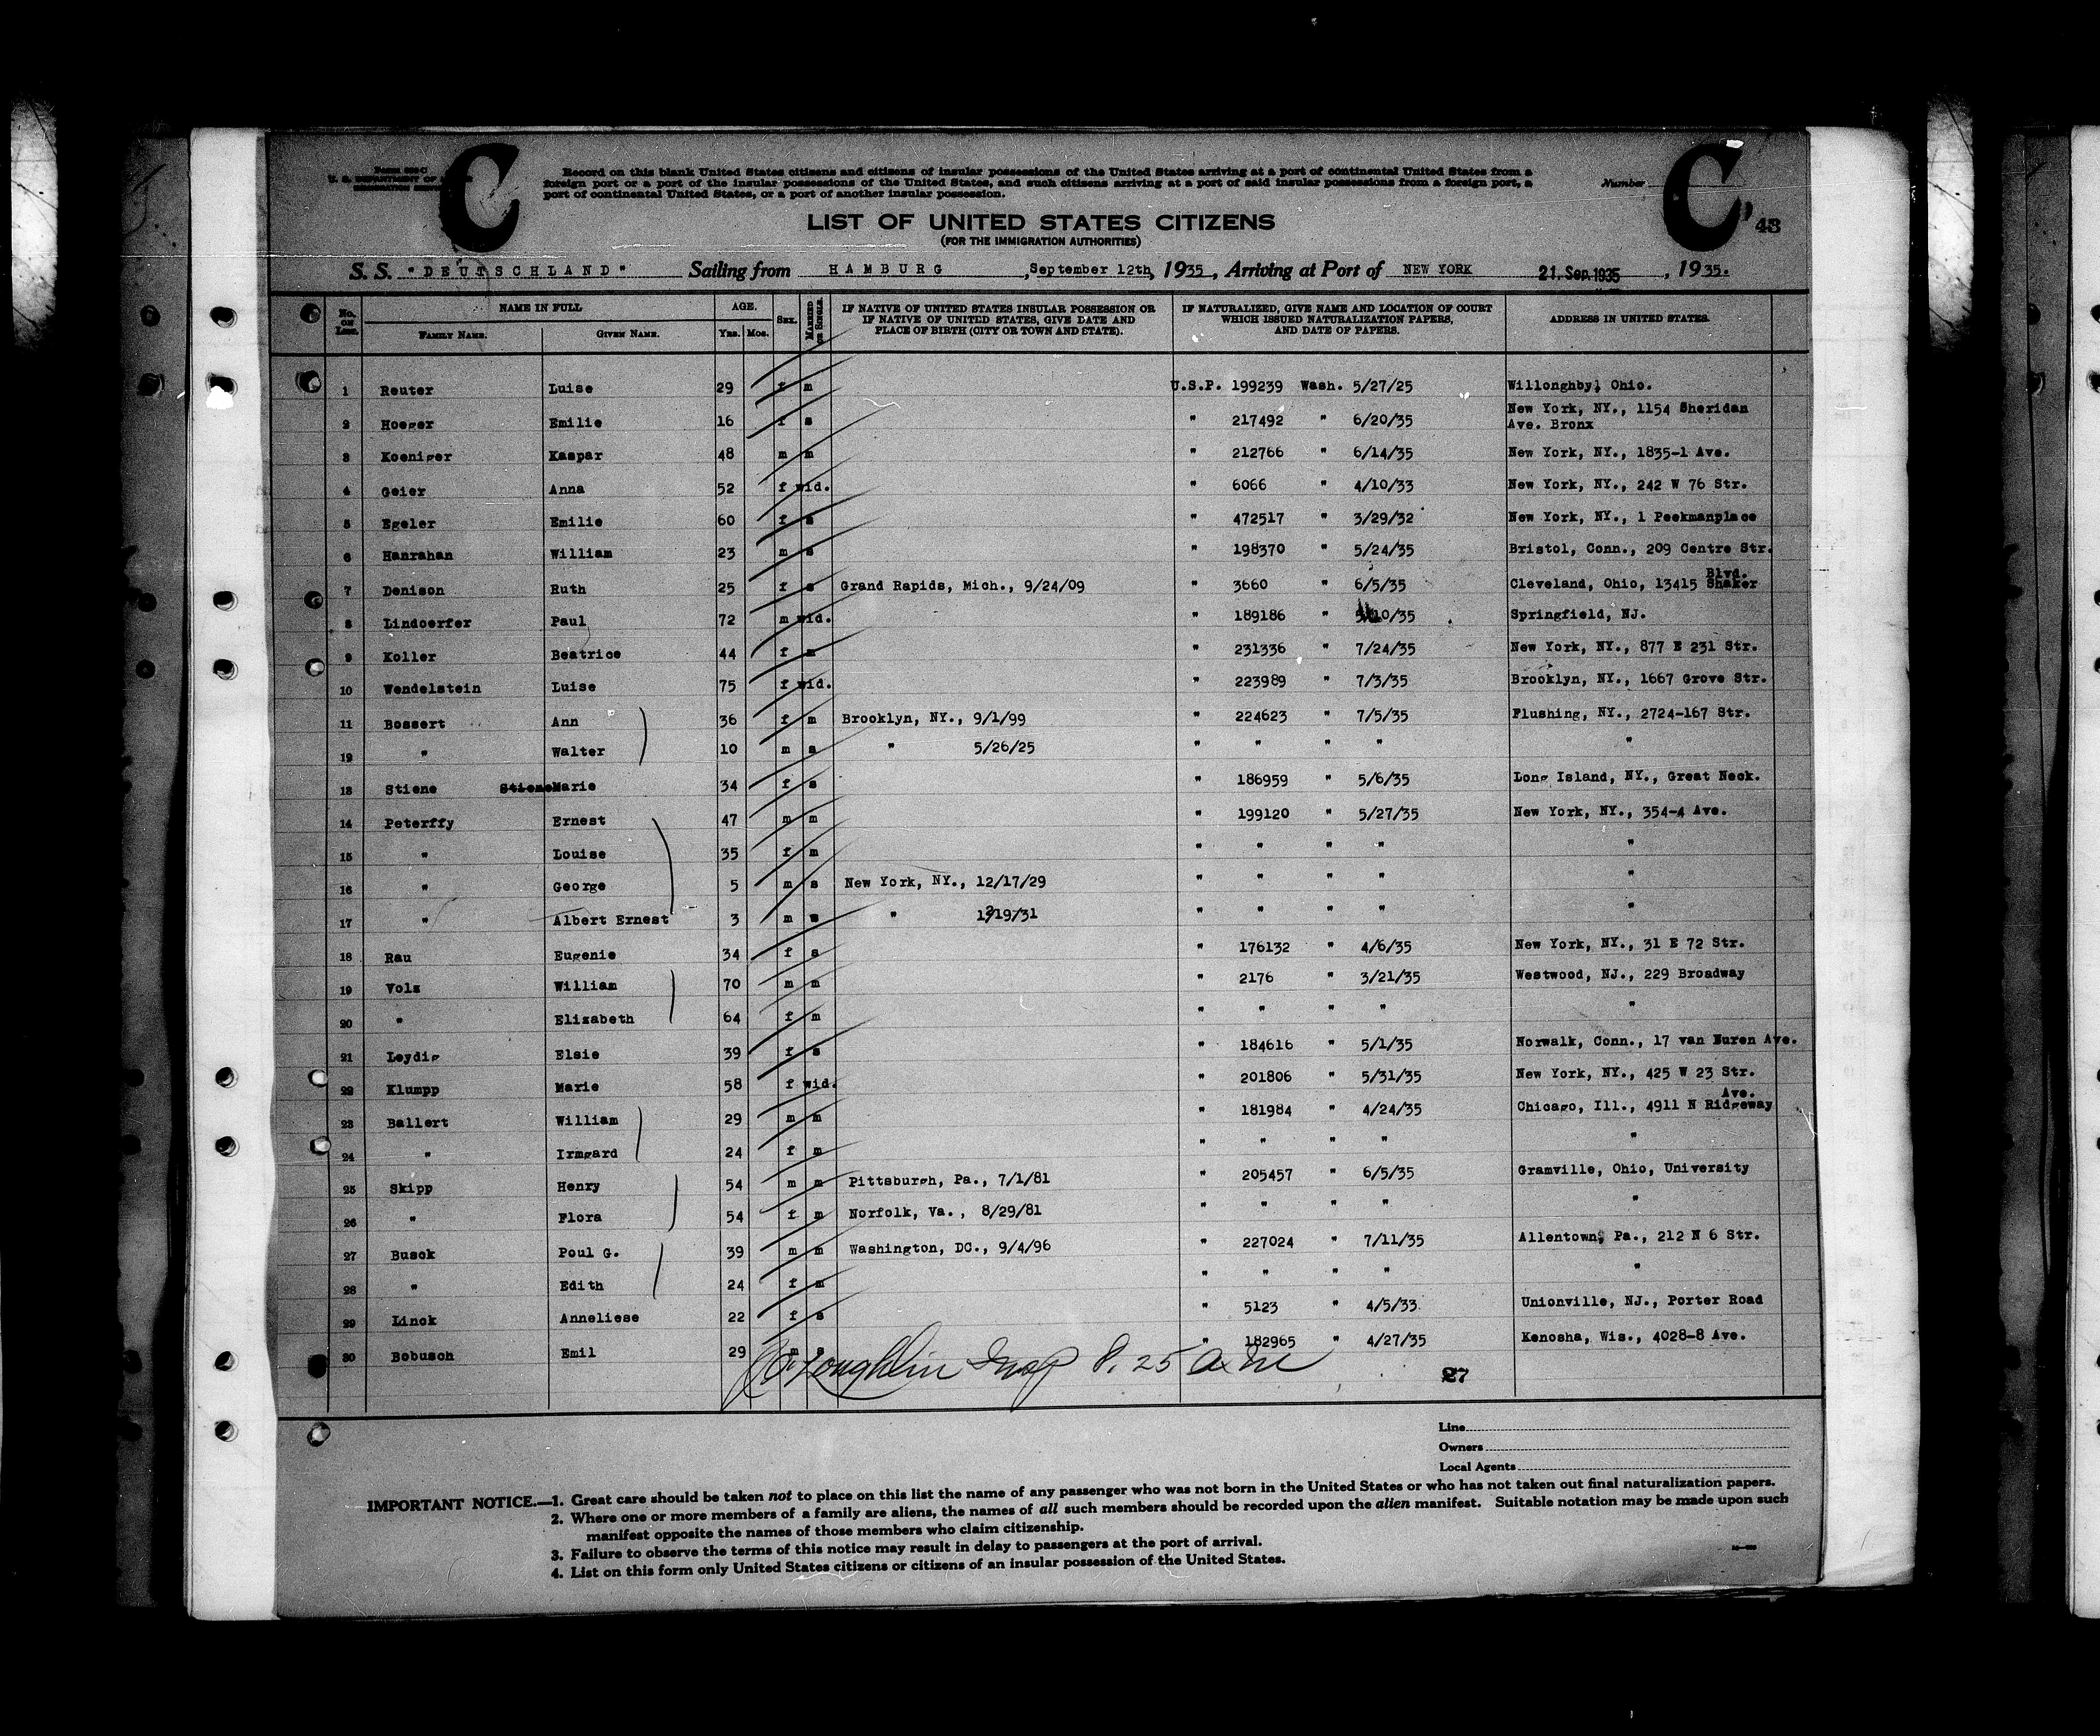 U. S. DEPARTMENT OF
C
Record on this blank United States citizens and citizens of insular possessions of the United States arriving at a port of continental United States from a
foreign port or a port of the insular possessions of the United States, and such citizens arriving at a port of said insular possessions from a foreign port, a
port of continental United States, or a port of another insular possession.
Number
C, 43
LIST OF UNITED STATES CITIZENS
(FOR THE IMMIGRATION AUTHORITIES)
S. S. "DEUTSCHLAND" Sailing from HAMBURG, September 12th, 1935, Arriving at Port of NEW YORK 21. Sep. 1935, 1935.
No. on List. NAME IN FULL AGE. Sex. Married or Single. IF NATIVE OF UNITED STATES INSULAR POSSESSION OR IF NATIVE OF UNITED STATES, GIVE DATE AND PLACE OF BIRTH (CITY OR TOWN AND STATE). IF NATURALIZED, GIVE NAME AND LOCATION OF COURT WHICH ISSUED NATURALIZATION PAPERS, AND DATE OF PAPERS. ADDRESS IN UNITED STATES.
Family Name. Given Name. Yrs. Mos.
1 Reuter Luise 29 f m U.S.P. 199239 Wash. 5/27/25 Willonghby, Ohio.
2 Hoeger Emilie 16 f s " 217492 " 6/20/35 New York, NY., 1154 Sheridan Ave. Bronx
3 Koeniger Kaspar 48 m m " 212766 " 6/14/35 New York, NY., 1835-1 Ave.
4 Geier Anna 52 f wid. " 6066 " 4/10/33 New York, NY., 242 W 76 Str.
5 Egeler Emilie 60 f s " 472517 " 3/29/32 New York, NY., 1 Peekmanplace
6 Hanrahan William 23 m s " 198370 " 5/24/35 Bristol, Conn., 209 Centre Str.
7 Denison Ruth 25 f s Grand Rapids, Mich., 9/24/09 " 3660 " 6/5/35 Cleveland, Ohio, 13415 Shaker Blvd.
8 Lindoerfer Paul 72 m wid. " 189186 " 10/35 Springfield, NJ.
9 Koller Beatrice 44 f m " 231336 " 7/24/35 New York, NY., 877 E 231 Str.
10 Wendelstein Luise 75 f wid. " 223989 " 7/3/35 Brooklyn, NY., 1667 Grove Str.
11 Bossert Ann 36 f m Brooklyn, NY., 9/1/99 " 224623 " 7/5/35 Flushing, NY., 2724-167 Str.
12 " Walter 10 m s " 5/26/25 " " " " "
13 Stiene Stiene Marie 34 f s " 186959 " 5/6/35 Long Island, NY., Great Neck.
14 Peterffy Ernest 47 m m " 199120 " 5/27/35 New York, NY., 354-4 Ave.
15 " Louise 35 f m " " " " "
16 " George 5 m s New York, NY., 12/17/29 " " " " "
17 " Albert Ernest 3 m s " 19/31 " " " " "
18 Rau Eugenie 34 f s " 176132 " 4/6/35 New York, NY., 31 E 72 Str.
19 Volz William 70 m m " 2176 " 3/21/35 Westwood, NJ., 229 Broadway
20 " Elizabeth 64 f m " " " " "
21 Leydig Elsie 39 f s " 184616 " 5/1/35 Norwalk, Conn., 17 van Buren Ave.
22 Klumpp Marie 58 f wid. " 201806 " 5/31/35 New York, NY., 425 W 23 Str.
23 Ballert William 29 m m " 181984 " 4/24/35 Chicago, Ill., 4911 N Ridgeway Ave.
24 " Irmgard 24 f m " " " " "
25 Skipp Henry 54 m m Pittsburgh, Pa., 7/1/81 " 205457 " 6/5/35 Gramville, Ohio, University
26 " Flora 54 f m Norfolk, Va., 8/29/81 " " " " "
27 Busck Poul G. 39 m m Washington, DC., 9/4/96 " 227024 " 7/11/35 Allentown, Pa., 212 N 6 Str.
28 " Edith 24 f m " " " " "
29 Linck Anneliese 22 f s " 5123 " 4/5/33 Unionville, NJ., Porter Road
30 Bobusch Emil 29 m s " 182965 " 4/27/35 Kenosha, Wis., 4028-8 Ave.
Loughlin Insp 8.25 am
27
Line
Owners
Local Agents
IMPORTANT NOTICE.—1. Great care should be taken not to place on this list the name of any passenger who was not born in the United States or who has not taken out final naturalization papers.
2. Where one or more members of a family are aliens, the names of all such members should be recorded upon the alien manifest. Suitable notation may be made upon such
manifest opposite the names of those members who claim citizenship.
3. Failure to observe the terms of this notice may result in delay to passengers at the port of arrival.
4. List on this form only United States citizens or citizens of an insular possession of the United States.